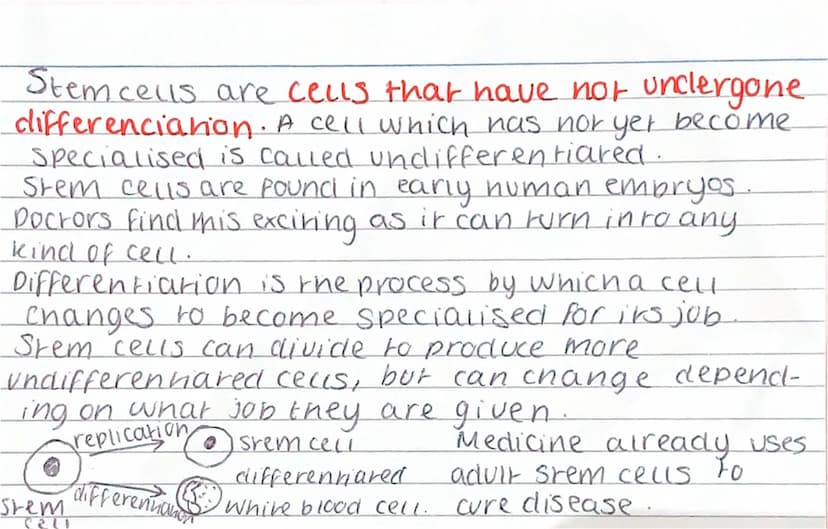 Stem cells are cells that have not undergone
differenciation. A cell which has not yet become
specialised is called undifferentiated.
Stem cells are found in early human embryos.
Doctors find this exciting as it can turn into any
kind of cell.
Differentiation is the process by which a cell
changes to become specialised for its job.
Stem cells can divide to produce more
undifferentiated cells, but can change depend-
ing on what job they are given.
replication
stem cell
differentiation
differentiated
white blood cell.
stem
cell
Medicine already uses
adult stem cells to
cure disease.